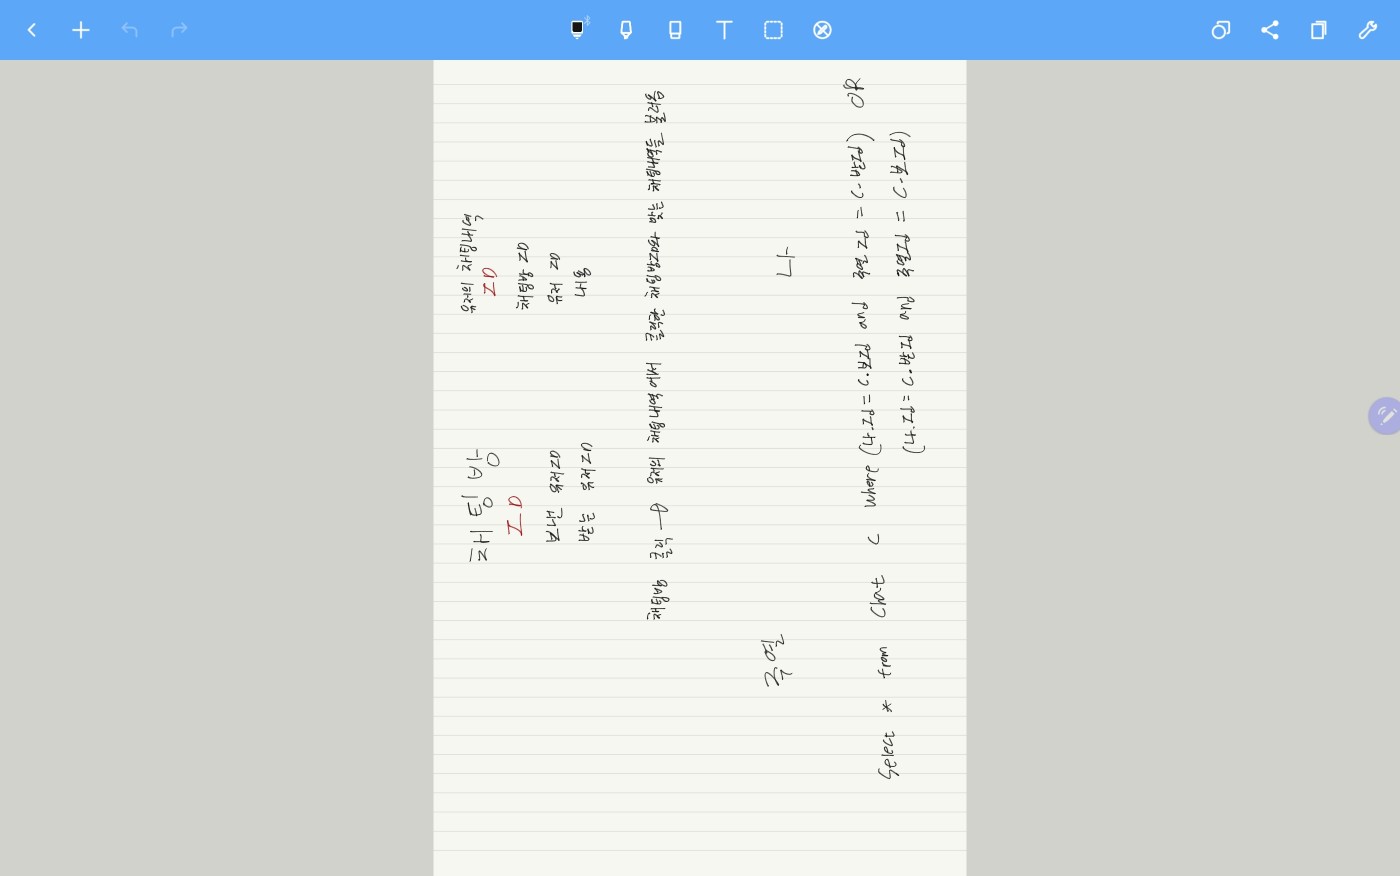 채팅방
ID
보낸 유저ID
받는 유저ID
유저의 채팅내역
ID
채팅방 ID
유저 ID
내용
채팅방 클릭 → 유저의 채팅내역에서 클릭한 채팅방ID와 맞는 채팅내역들 불러옴
주열
나
Select * from Chat C where (나.Id = C.보Id and 주열Id = C.받Id) OR
(나.Id = C.받Id and 주열Id = C.보Id)